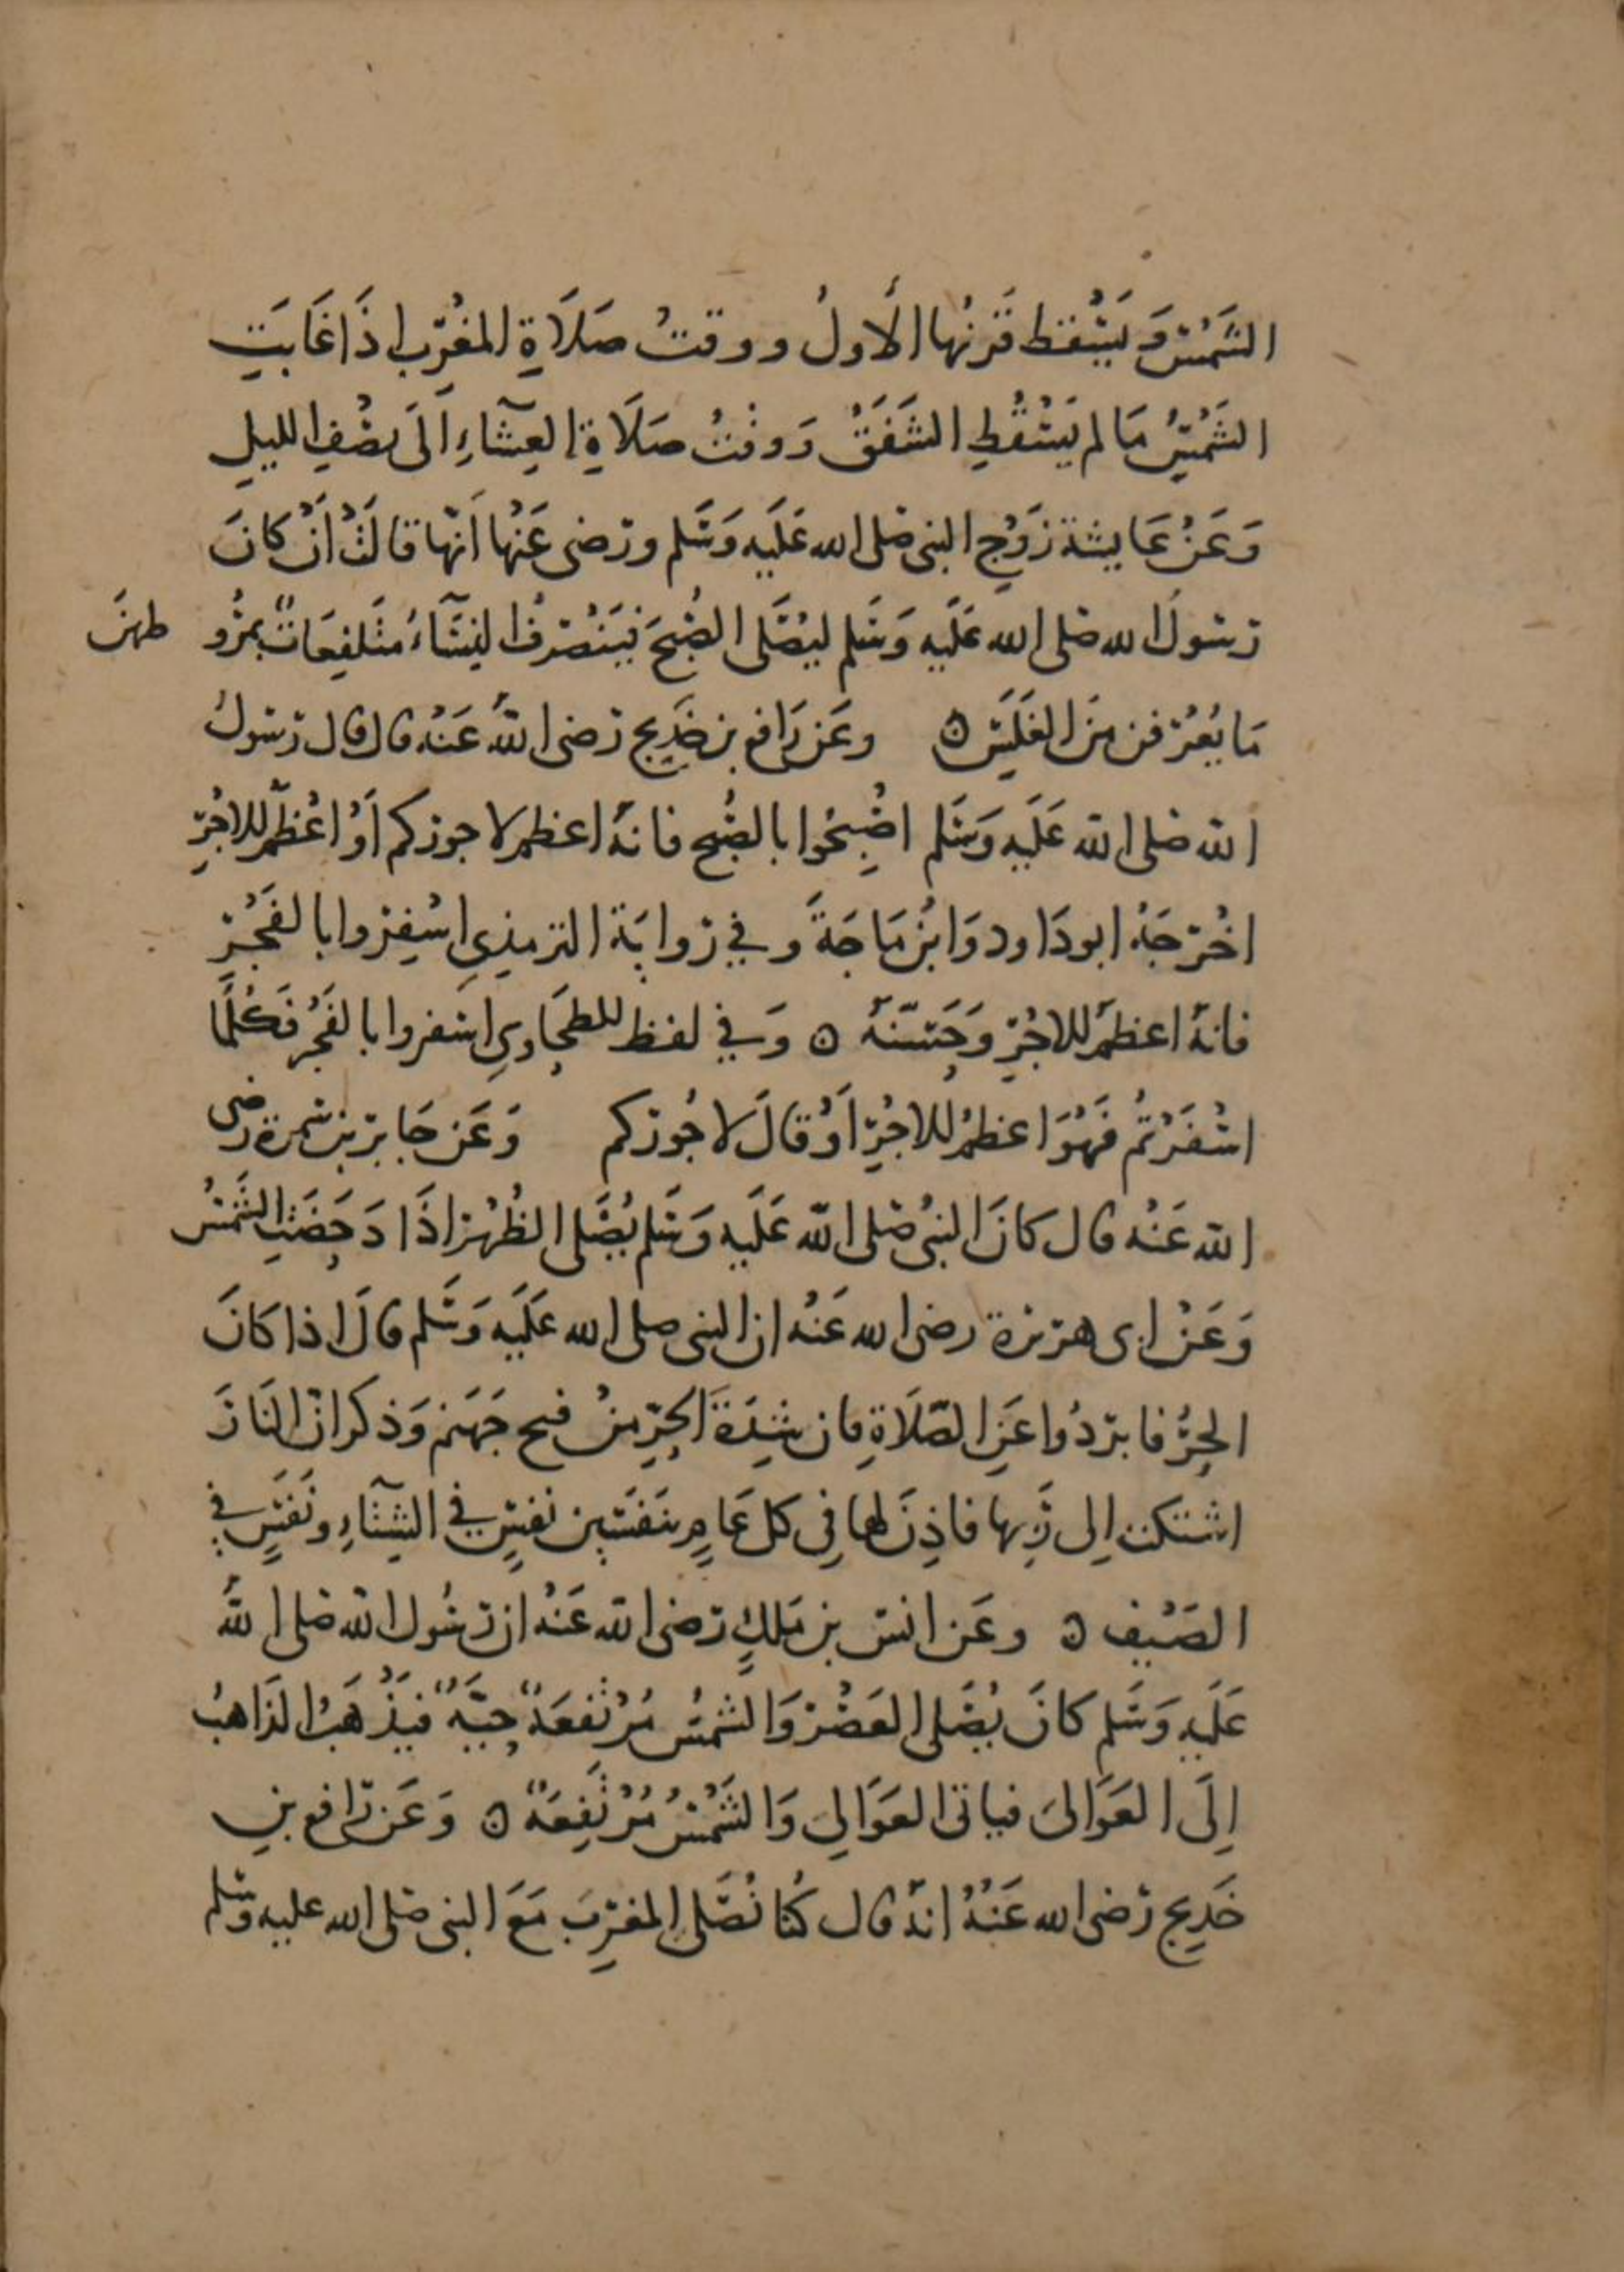 الشَّمْسُ وَيَسْقط قَرْنُها الأَولُ ووقتُ صَلَاةِ المغْرِب اذَا غَابَتِ
الشَمْسُ مَا لم يَسْقُطِ الشَفَقُ وَوقْتُ صَلَاةِ العِشَآءِ اَلَى نصْفِ الليلِ
وَعَنْ عَايشة زَوْجِ النبى صَلى الله عَلَيه وَسَلم ورَضى عَنْها اَنّها قالَتْ اَنْ كانَ
رسُولُ الله صَلى الله عَلَيه وَسَلم ليُصَلى الصُبْحَ فيَنْصَرفُ النِسَآءُ مُتَلفِعَاتٌ بمُرُو طهنَ
مَا يُعْرَفن مِنَ الغَلَسِ ه وعَن رَافع بن خَدِيج رَضى اللهُ عَنْه قال قال رَسُولُ
الله صَلى الله عَلَيه وَسَلم اصْبِحُوا بالصُبْح فانهُ اعظم لاجوركم اَوْ اعْظَمُ للاجْرِ
اخْرَجَهُ ابو دَاود وَابْن مَاجَةَ وفي رِوايَة الترمذِي اسْفِرُوا بالفَجْرِ
فانهُ اعظمُ للاجْرِ وَحَسّنَهُ ه وَفي لفظ للطحَاوِي اسفروا بالفَجْر فَكُلَّمَا
اسْفَرْتُم فَهُوَ اعظمُ للاجْرِ اَوْ قالَ لاجُوركم وَعَن جَابرِ بن سَمرة رضى
الله عَنْه قال كانَ النبىُ صَلى الله عَلَيه وَسَلم يُصَلى الظُهْرَ اذَا دَحَضَتِ الشَمْسُ
وَعَنْ ابى هريرة رضى الله عَنْه ان النبى صلى الله عَلَيه وَسَلم قالَ اذا كانَ
الحَرُّ فابرِدُوا عَنِ الصَّلَاةِ فان شِدَةَ الحَرِّ مِنْ فيح جَهَنم وَذكر انّ النَارَ
اشتكت اِلى رَبِّها فاذِنَ لهَا فى كل عَامٍ بنَفَسَين نفسٍ في الشِتَآءِ ونَفَسٍ في
الصَيْفِ ه وعَن انس بن مَلكٍ رَضى الله عَنْه ان رَسُول الله صَلى اللهُ
عَلَيه وَسَلم كانَ يُصَلى العَصْرَ وَالشمسُ مُرْتَفعَةٌ حَيَّةٌ فيَذْهَبُ الذَاهبُ
اِلَى العَوَالىَ فياتى العَوَالىَ وَالشَمْسُ مُرْتَفِعَةٌ ه وَعَن رَافع بنِ
خَدِيج رَضى الله عَنْهُ انهُ قال كُنا نُصَلى المغرِبَ مَعَ النبى صَلى الله عليه وَسَلم